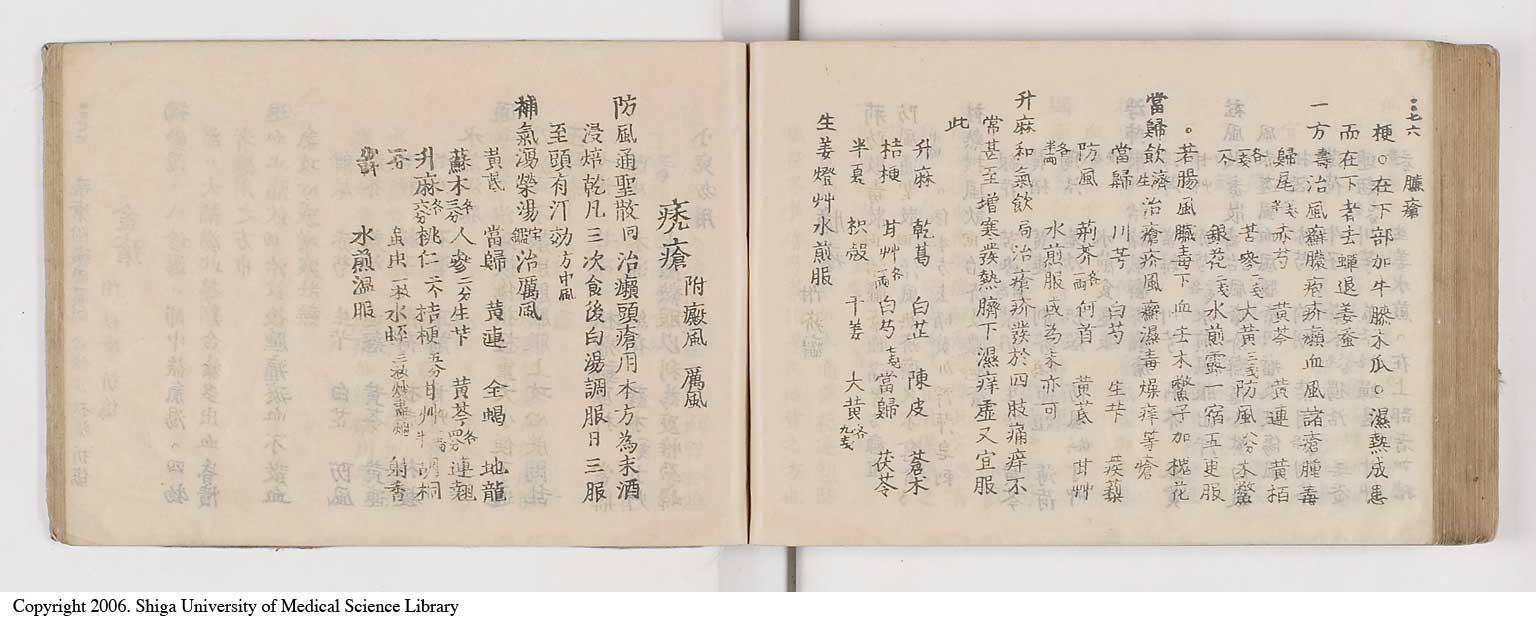 臁瘡
梗。在下部加牛膝木瓜。濕熱成患
而在下者去蟬退姜蚕
一方 壽 治風癬膿疱疥癩血風諸瘡腫毒
歸尾 赤芍 黄芩 黄連 黄栢
各 苦参 大黄 防風 木鱉
不 銀花 水煎露一宿五更服
。若腸風臓毒下血去木鱉子加槐花
當歸飲 濟生 治瘡疥風癬濕毒燥痒等瘡
當歸 川芎 白芍 生芐 蒺藜
防風 荊芥 各一両 何首 黄芪 甘艸
各 水煎服或為末亦可
升麻和氣飲 局 治瘡疥發於四肢痛痒不
常甚至增寒發熱臍下濕痒虚又宜服
此
升麻 乾葛 白芷 陳皮 蒼朮
桔梗 甘艸 各 白芍 當歸 茯苓
半夏 枳殻 干姜 大黄 各
生姜燈艸水煎服
痜瘡 附 癜風 厲風
防風通聖散 同 治癩頭瘡用本方為末酒
浸焙乾凡三次食後白湯調服日三服
至頭有汗効 方中風
補氣瀉榮湯 宝鑑 治厲風
黄芪 當歸 黄連 全蝎 地龍
蘇木 各三分 人参 二分 生芐 黄芩 各四分 連翹
升麻 各六分 桃仁 三个 桔梗 五分 甘艸 胡桐
虻虫 水蛭 三 炒盡烟 射香
水煎温服
Copyright 2006. Shiga University of Medical Science Library